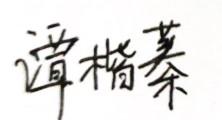 谭楷蓁